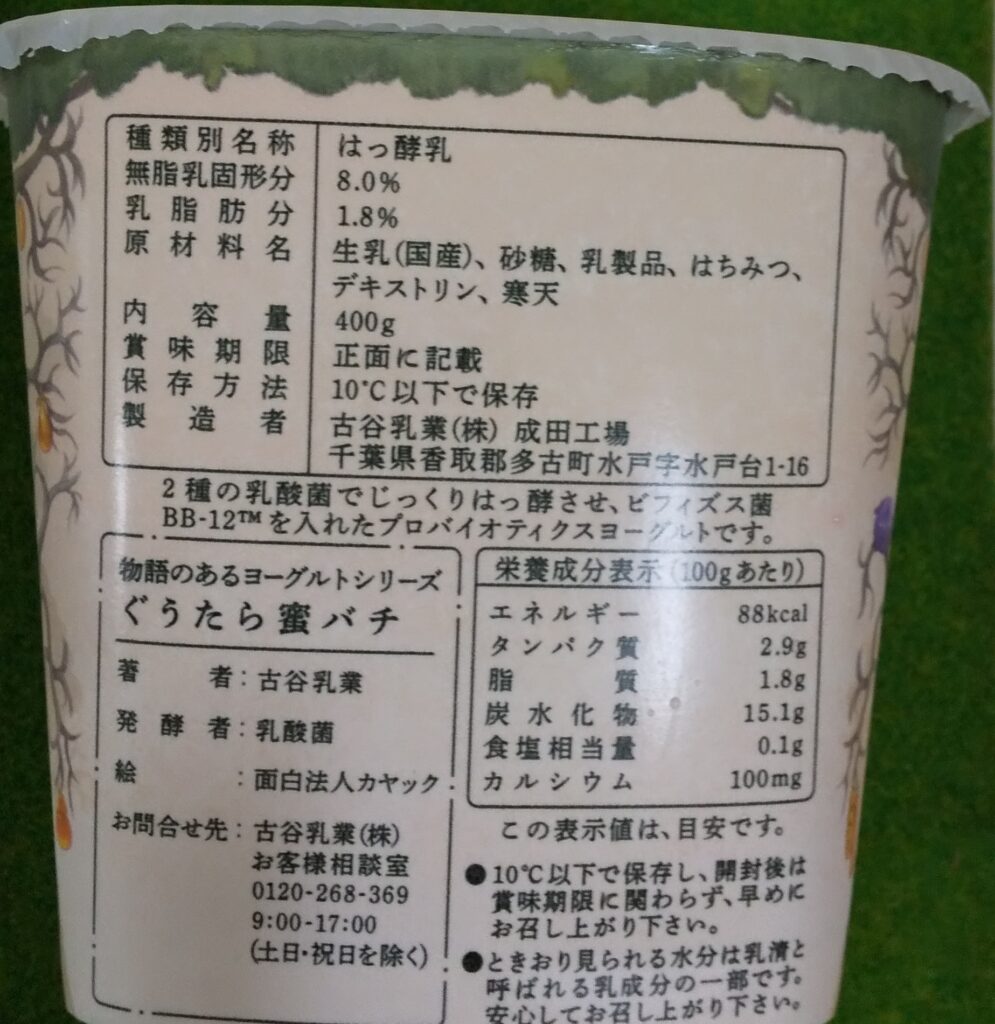 種類別名称 はっ酵乳
無脂乳固形分 8.0%
乳脂肪分 1.8%
原材料名 生乳(国産)、砂糖、乳製品、はちみつ、
デキストリン、寒天
内容量 400g
賞味期限 正面に記載
保存方法 10℃以下で保存
製造者 古谷乳業(株) 成田工場
千葉県香取郡多古町水戸字水戸台1-16
2種の乳酸菌でじっくりはっ酵させ、ビフィズス菌
BB-12™を入れたプロバイオティクスヨーグルトです。
物語のあるヨーグルトシリーズ
ぐうたら蜜バチ
著者：古谷乳業
発酵者：乳酸菌
絵：面白法人カヤック
お問合せ先：古谷乳業(株)
お客様相談室
0120-268-369
9:00-17:00
(土日・祝日を除く)
栄養成分表示(100gあたり)
エネルギー 88kcal
タンパク質 2.9g
脂質 1.8g
炭水化物 15.1g
食塩相当量 0.1g
カルシウム 100mg
この表示値は、目安です。
●10℃以下で保存し、開封後は
賞味期限に関わらず、早めに
お召し上がり下さい。
●ときおり見られる水分は乳清と
呼ばれる乳成分の一部です。
安心してお召し上がり下さい。